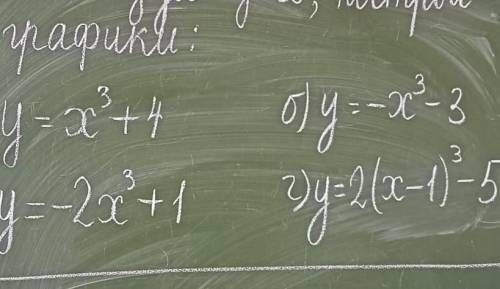 графики:
y = x³ + 4 б) y = -x³ - 3
y = -2x³ + 1 г) y = 2(x - 1)³ - 5